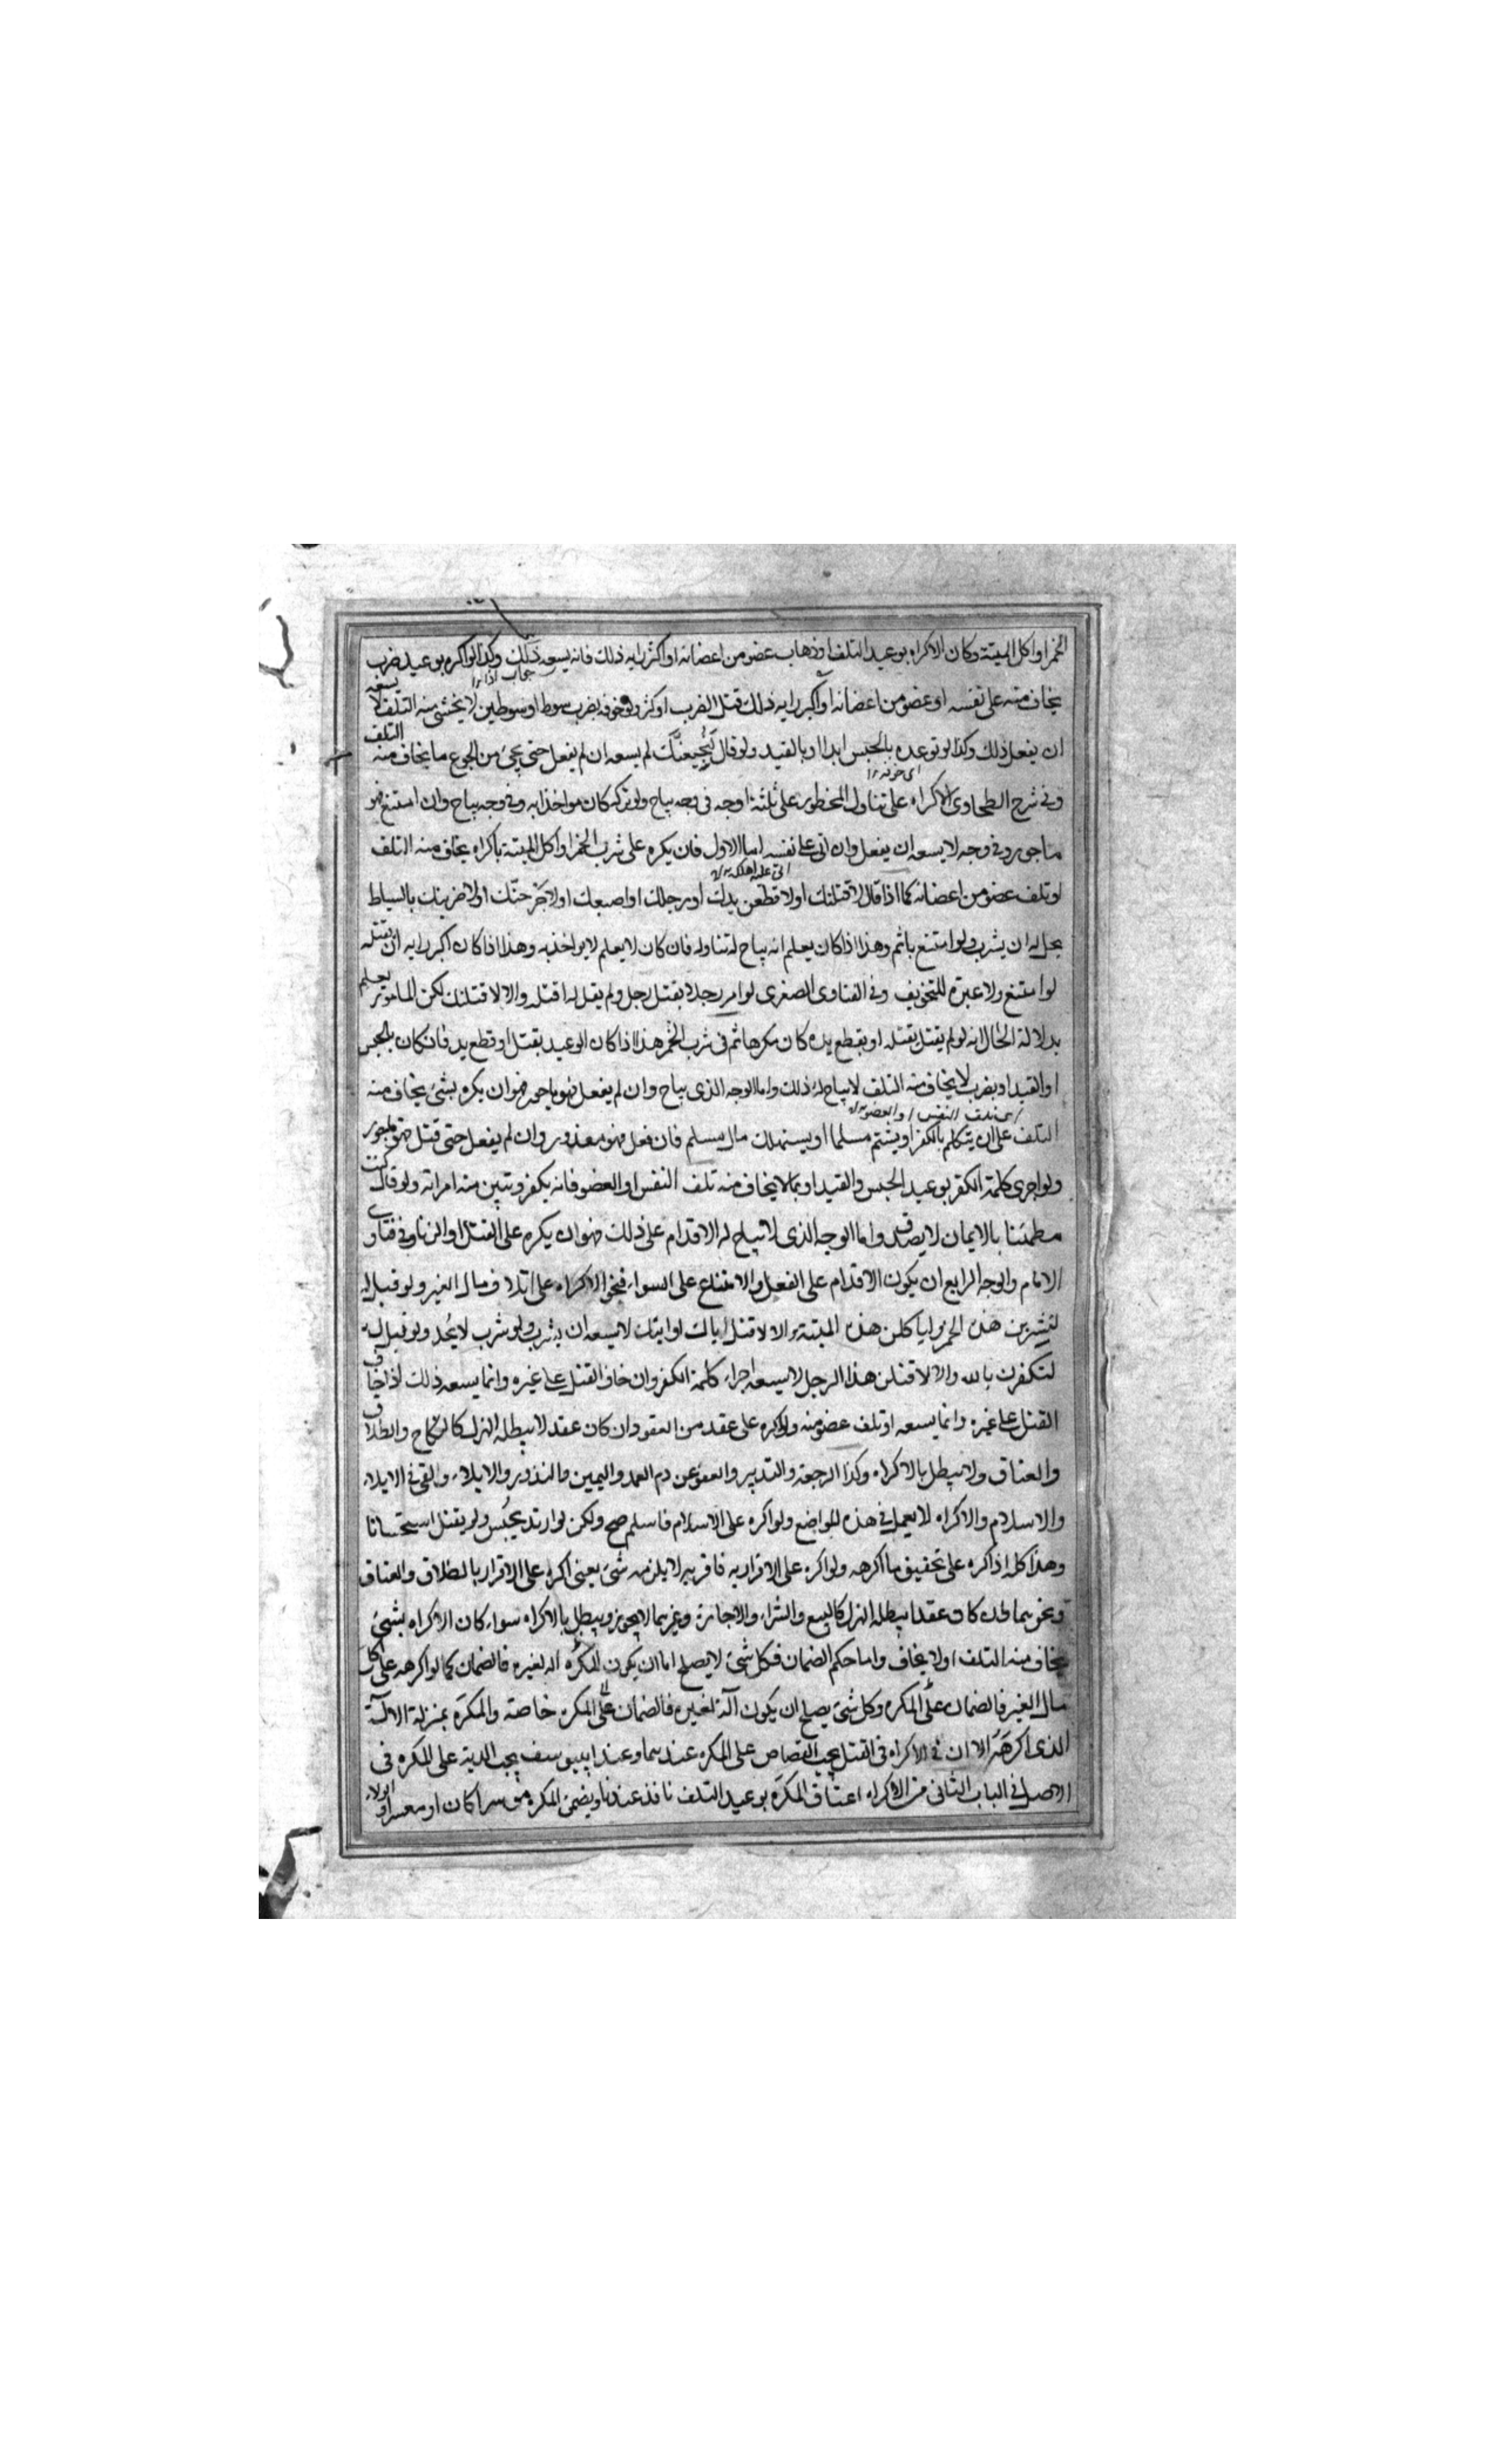 الخمر او اكل الميتة وكان الاكراه بوعيد التلف او ذهاب عضو من اعضائه او اكثر رايه ذلك فانه يسعه ذلك وكذا لو اكره بوعيد ضرب
جواب اذا
يخاف منه على نفسه او عضو من اعضائه او اكبر رايه ذلك قتل الضرب او كثر ولو خوفه بضرب سوط او سوطين لا يخشى منه التلف لا يسعه
ان يفعل ذلك وكذا لو توعده بالحبس ابدا او بالقيد ولو قال لنجيعنك لم يسعه ان لم يفعل حتى يجئ من الجوع ما يخاف منه التلف
وفي شرح الطحاوي الاكراه على تناول المحظور على ثلثة اوجه في وجه يباح ولو تركه كان مواخذا به وفي وجه يباح وان امتنع فهو
ماجور وفي وجه لا يسعه ان يفعل وان اتى على نفسه اما الاول فان يكره على شرب الخمر او اكل الميتة باكراه يخاف منه التلف
اتى عليه اهلكه
او تلف عضو من اعضائه كما اذا قال لاقتلنك او لاقطعن يدك او رجلك او اصبعك او لاجرحنّك او لاضربنك بالسياط
يحل له ان يشرب ولو امتنع ياثم وهذا اذا كان يعلم انه يباح له تناوله فان كان لا يعلم لا يواخذ به وهذا اذا كان اكبر رايه انه يقتله
لو امتنع ولا عبرة للتخويف وفي الفتاوى الصغرى لو امر رجلا بقتل رجل ولم يقل له اقتله والا لاقتلنك لكن المامور يعلم
بدلالة الحال انه لو لم يقتل يقتله او يقطع يده كان مكرها ثم في شرب الخمر هذا اذا كان الوعيد بقتل او قطع يد فان كان بالحبس
او القيد او بضرب لا يخاف منه التلف لا يباح له ذلك واما الوجه الذي يباح وان لم يفعل فهو ماجور فهو ان يكره بشئ يخاف منه
اي تلف النفس او العضو
التلف على ان يتكلم بالكفر او يشتم مسلما او يستهلك مال مسلم فان فعل فهو معذور وان لم يفعل حتى قتل فهو ماجور
ولو اجرى كلمة الكفر بوعيد الحبس والقيد او بما لا يخاف منه تلف النفس او العضو فانه يكفر وتبين منه امراته ولو قال كنت
مطمئنا بالايمان لا يصدق واما الوجه الذي لا يباح له الاقدام على ذلك فهو ان يكره على القتل او الزنا وفي فتاوى
الامام والوجه الرابع ان يكون الاقدام على الفعل والامتناع على السواء فنحو الاكراه على اتلاف مال الغير ولو قيل له
لتشربن هذه الخمر او لياكلن هذه الميتة والا لاقتل اباك او ابنك لا يسعه ان يشرب ولو شرب لا يحد ولو قيل له
لتكفرن بالله والا لاقتلن هذا الرجل لا يسعه اجراء كلمة الكفر وان خاف القتل على غيره وانما يسعه ذلك اذا خاف
القتل على غيره وانما يسعه او تلف عضو منه ولو اكره على عقد من العقود ان كان عقد لا يبطله الهزل كالنكاح والطلاق
والعتاق ولا يبطل بالاكراه وكذا الرجعة والتدبير والعفو عن دم العمد واليمين والنذور والايلاء والفئ في الايلاء
والاسلام والاكراه لا يعمل في هذه المواضع ولو اكره على الاسلام فاسلم صح ولكن لو ارتد يحبس ولو يقتل استحسانا
وهذا كله اذا اكره على تحقيق ما اكرهه ولو اكره على الاقرار به فاقر به لا يلزمه شئ يعني اكره على الاقرار بالطلاق والعتاق
ونحوهما ولان كان عقدا يبطله الهزل كالبيع والشراء والاجارة وغيرهما لا يجوز ويبطل بالاكراه سواء كان الاكراه بشئ
يخاف منه التلف او لا يخاف واما حكم الضمان فكل شئ لا يصلح اما ان يكون المكره اله لغيره فالضمان كما لو اكرهه على اكل
مال الغير فالضمان على المكره وكل شئ يصلح ان يكون آلة لغيره فالضمان على المكره خاصة والمكرَه بمنزلة الالة
الذي اكرهه الا ان في الاكراه في القتل يجب القصاص على المكره عندهما وعند ابي يوسف يجب الدية على المكره في
الاصل في الباب الثاني من الاكراه اعتاق المكرَه بوعيد التلف نافذ عندنا ويضمن المكره موسرا كان او معسرا والولاء